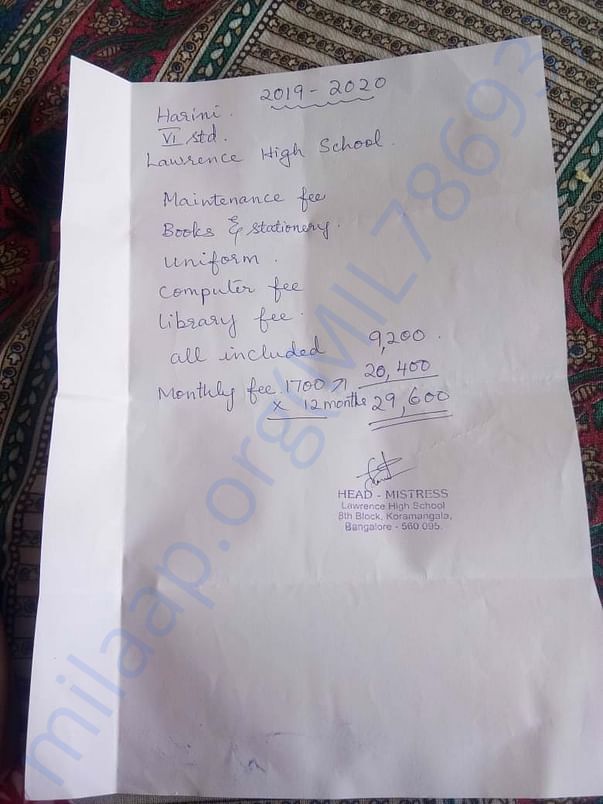 2019 - 2020
Harini.
VI std.
Lawrence High School.
Maintenance fee
Books & stationery.
uniform.
computer fee
library fee.
all included 9,200.
Monthly fee 1700 20,400
x 12 months 29,600
HEAD - MISTRESS
Lawrence High School
8th Block, Koramangala,
Bangalore - 560 095.
milaap.org(MIL78693